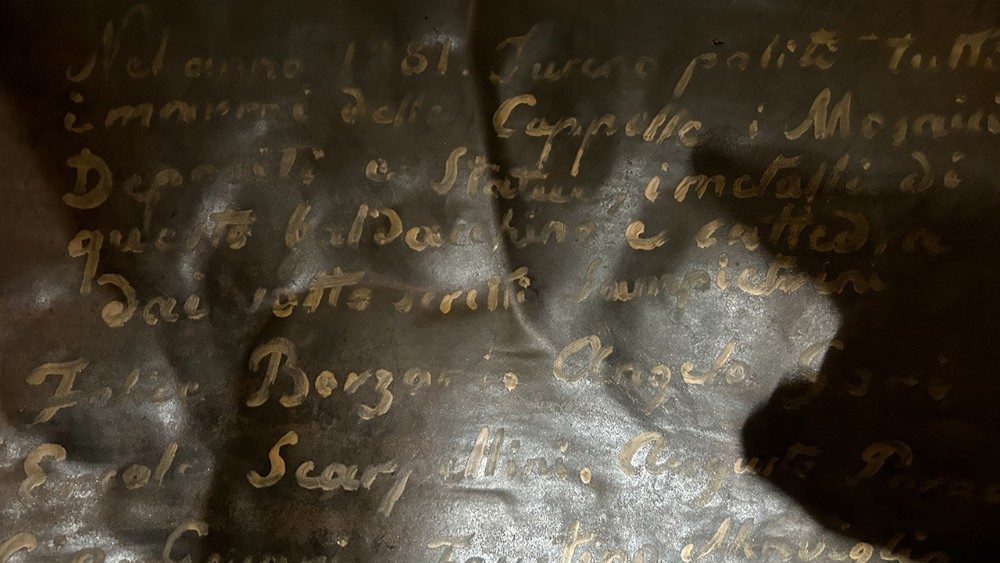 Nel anno 1861. Furono politi tutti
i marmi delle Cappelle i Mosaici
Depositi e Statue, i metalli di
questo baldacchino e cattedra
dai sotto scritti Sampietrini
Felice Barzanio Angelo
Ercole Scarpellini. Augusto